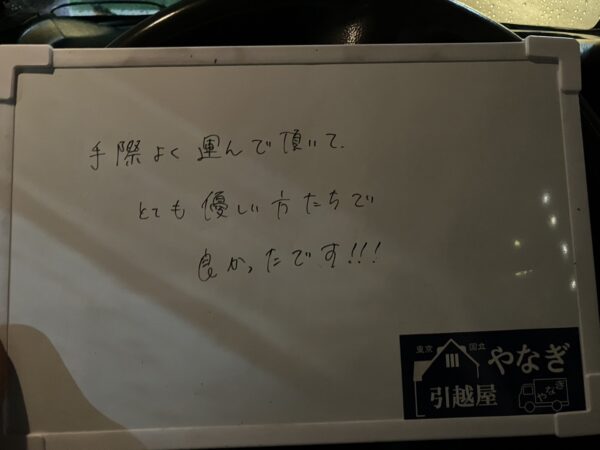 手際よく運んで頂いて、
とても優しい方たちで
良かったです!!!
東京 国立 やなぎ
引越屋 やなぎ